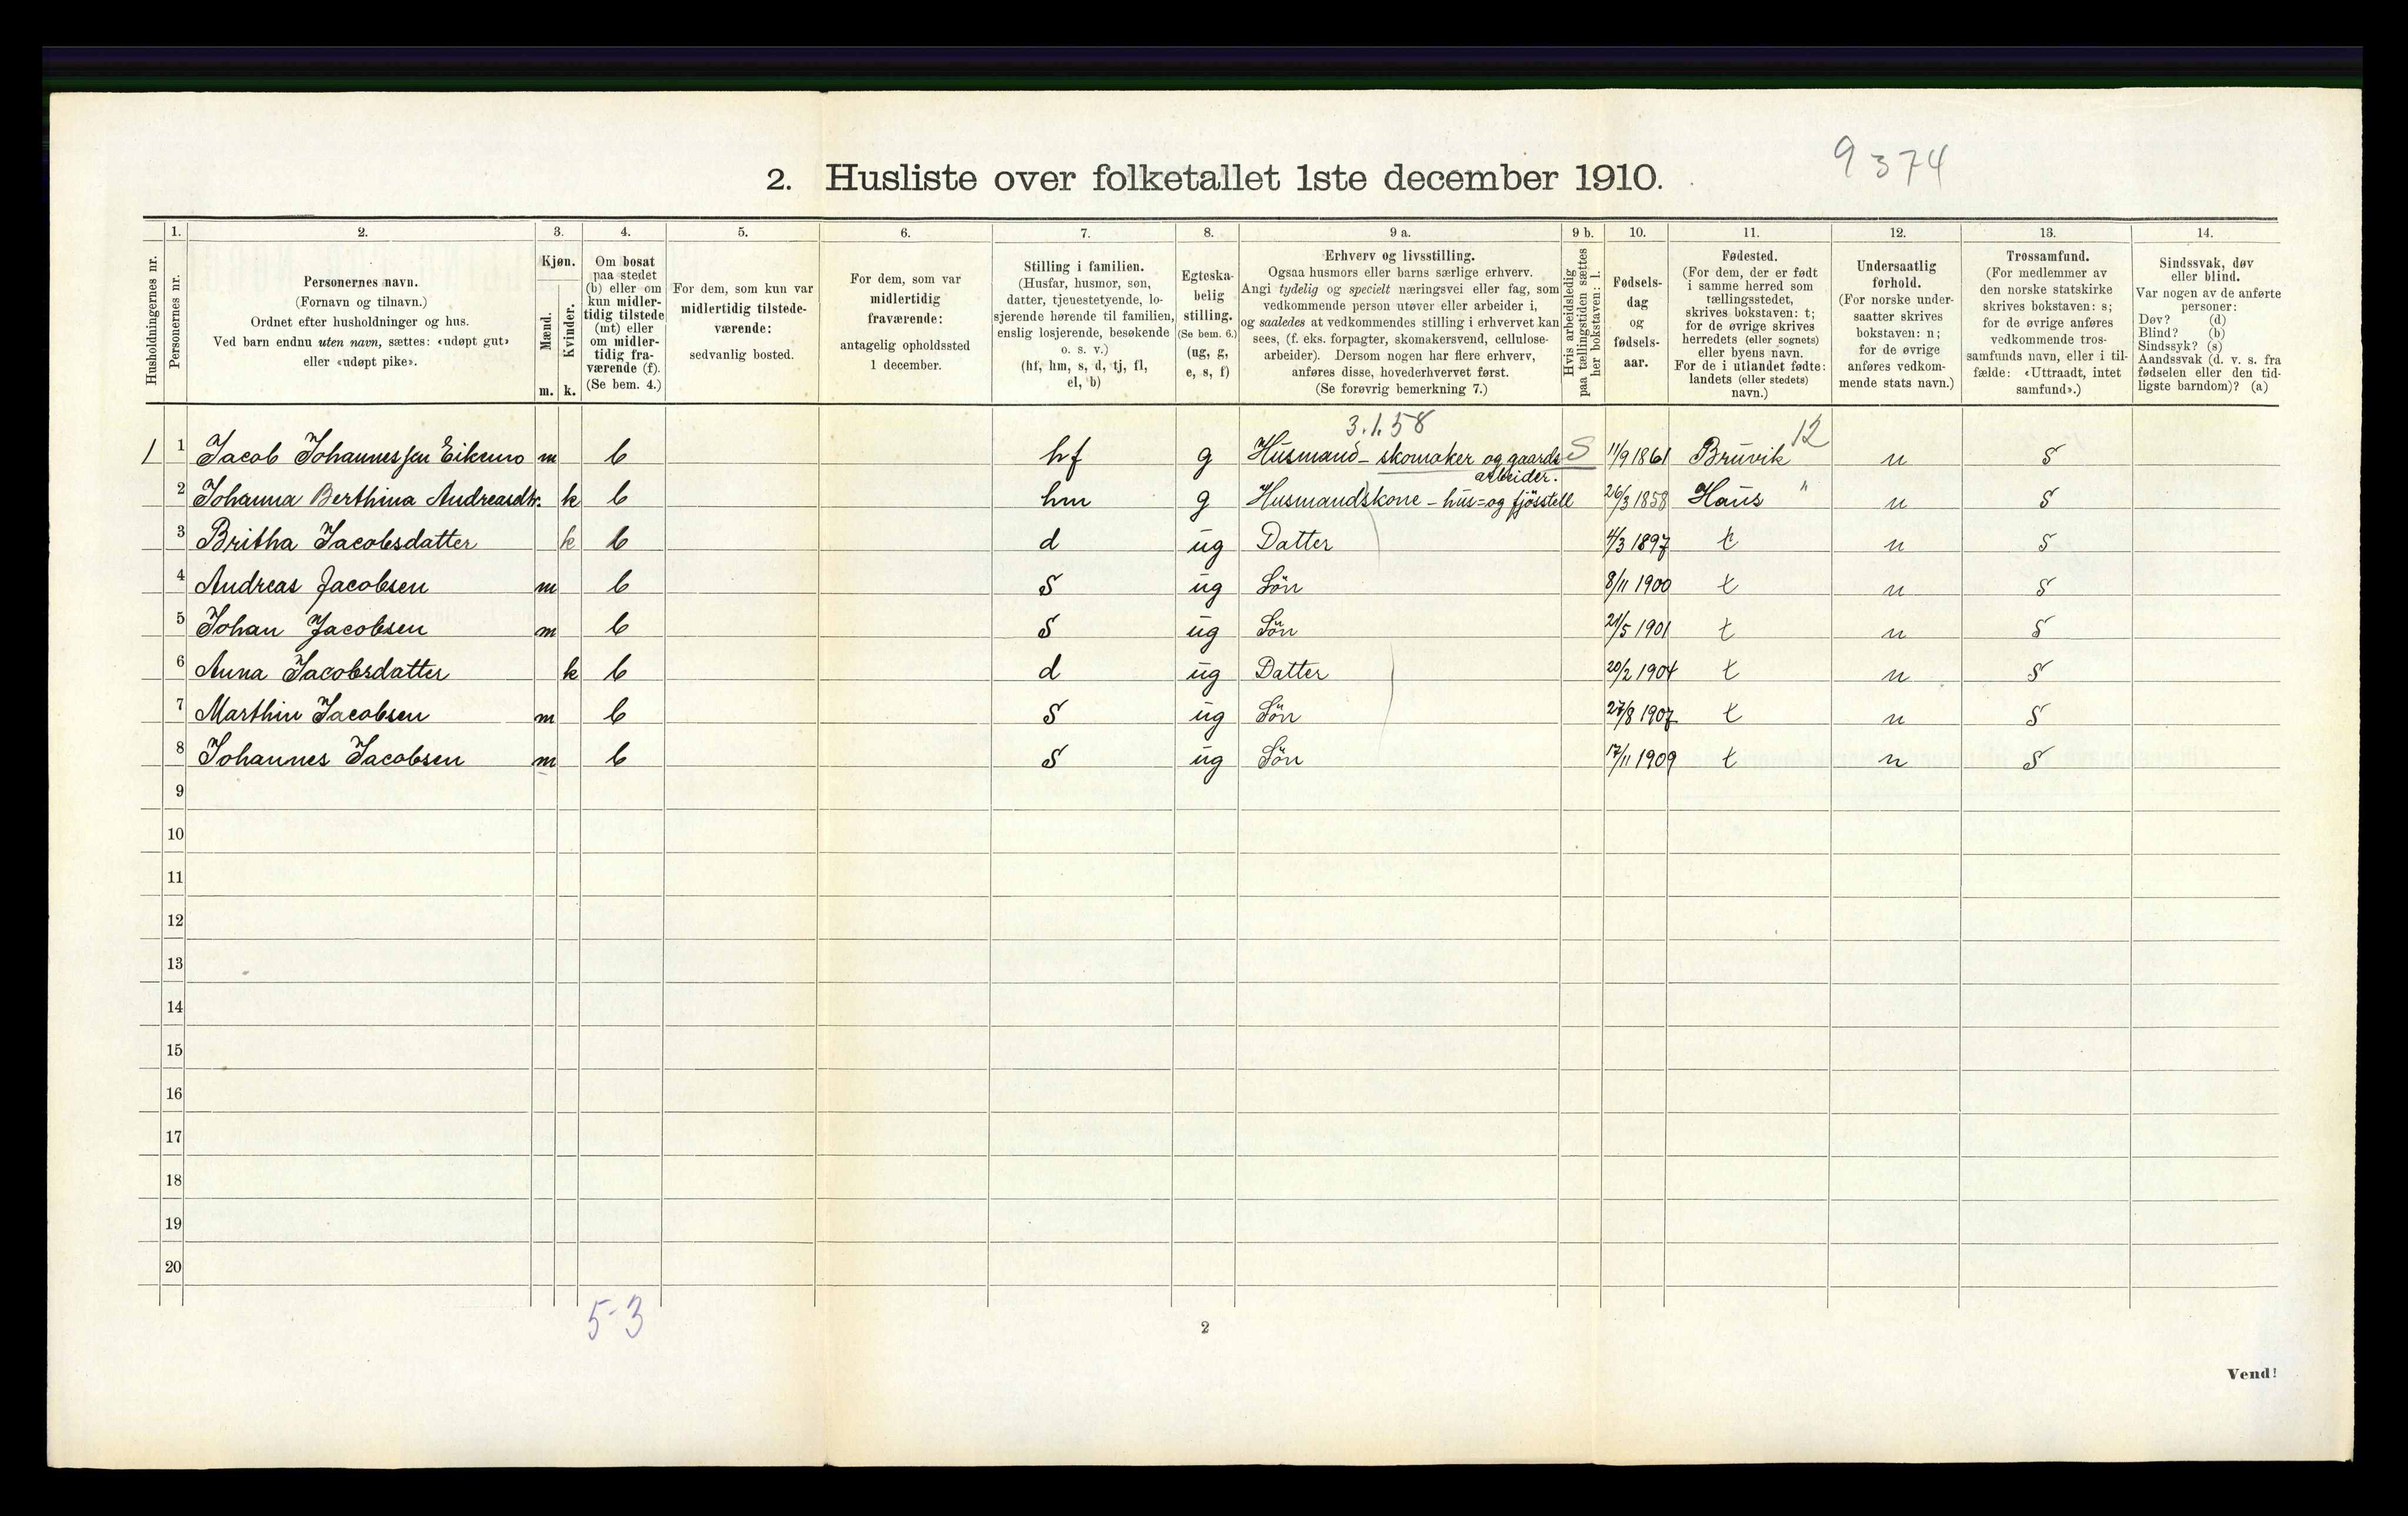 9374
2. Husliste over folketallet 1ste december 1910.
Husholdningernes nr.
1.
Personernes nr.
2.
Personernes navn.
(Fornavn og tilnavn.)
Ordnet efter husholdninger og hus.
Ved barn endnu uten navn, sættes: «udøpt gut»
eller «udøpt pike».
3.
Kjøn.
Mænd.
m.
Kvinder.
k.
4.
Om bosat
paa stedet
(b) eller om
kun midler-
tidig tilstede
(mt) eller
om midler-
tidig fra-
værende (f).
(Se bem. 4.)
5.
For dem, som kun var
midlertidig tilstede-
værende:
sedvanlig bosted.
6.
For dem, som var
midlertidig
fraværende:
antagelig opholdssted
1 december.
7.
Stilling i familien.
(Husfar, husmor, søn,
datter, tjenestetyende, lo-
sjerende hørende til familien,
enslig losjerende, besøkende
o. s. v.)
(hf, hm, s, d, tj, fl,
el, b)
8.
Egteska-
belig
stilling.
(Se bem. 6.)
(ug, g,
e, s, f)
9 a.
Erhverv og livsstilling.
Ogsaa husmors eller barns særlige erhverv.
Angi tydelig og specielt næringsvei eller fag, som
vedkommende person utøver eller arbeider i,
og saaledes at vedkommendes stilling i erhvervet kan
sees, (f. eks. forpagter, skomakersvend, cellulose-
arbeider). Dersom nogen har flere erhverv,
anføres disse, hovederhvervet først.
(Se forøvrig bemerkning 7.)
9 b.
Hvis arbeidsledig
paa tællingstiden sættes
her bokstaven: l.
10.
Fødsels-
dag
og
fødsels-
aar.
11.
Fødested.
(For dem, der er født
i samme herred som
tællingsstedet,
skrives bokstaven: t;
for de øvrige skrives
herredets (eller sognets)
eller byens navn.
For de i utlandet fødte:
landets (eller stedets)
navn.)
12.
Undersaatlig
forhold.
(For norske under-
saatter skrives
bokstaven: n;
for de øvrige
anføres vedkom-
mende stats navn.)
13.
Trossamfund.
(For medlemmer av
den norske statskirke
skrives bokstaven: s;
for de øvrige anføres
vedkommende tros-
samfunds navn, eller i til-
fælde: «Uttraadt, intet
samfund».)
14.
Sindssvak, døv
eller blind.
Var nogen av de anførte
personer:
Døv? (d)
Blind? (b)
Sindssyk? (s)
Aandssvak (d. v. s. fra
fødselen eller den tid-
ligste barndom)? (a)
3.1.58 12
1 1 Jacob Johannessen Eikemo m b hf g Husmand - skomaker og gaards S 11/9 1861 Bruvik n s
arbeider.
2 Johanna Berthina Andreasdtr. k b hm g Husmandskone - hus= og fjösstell 26/3 1858 Haus " n s
3 Britha Jacobsdatter k b d ug Datter 4/3 1897 t n s
4 Andreas Jacobsen m b s ug Sön 8/11 1900 t n s
5 Johan Jacobsen m b s ug Sön 21/5 1901 t n s
6 Anna Jacobsdatter k b d ug Datter 20/2 1904 t n s
7 Marthin Jacobsen m b s ug Sön 27/8 1907 t n s
8 Johannes Jacobsen m b s ug Sön 17/11 1909 t n s
9
10
11
12
13
14
15
16
17
18
19
20
5-3
2
Vend!